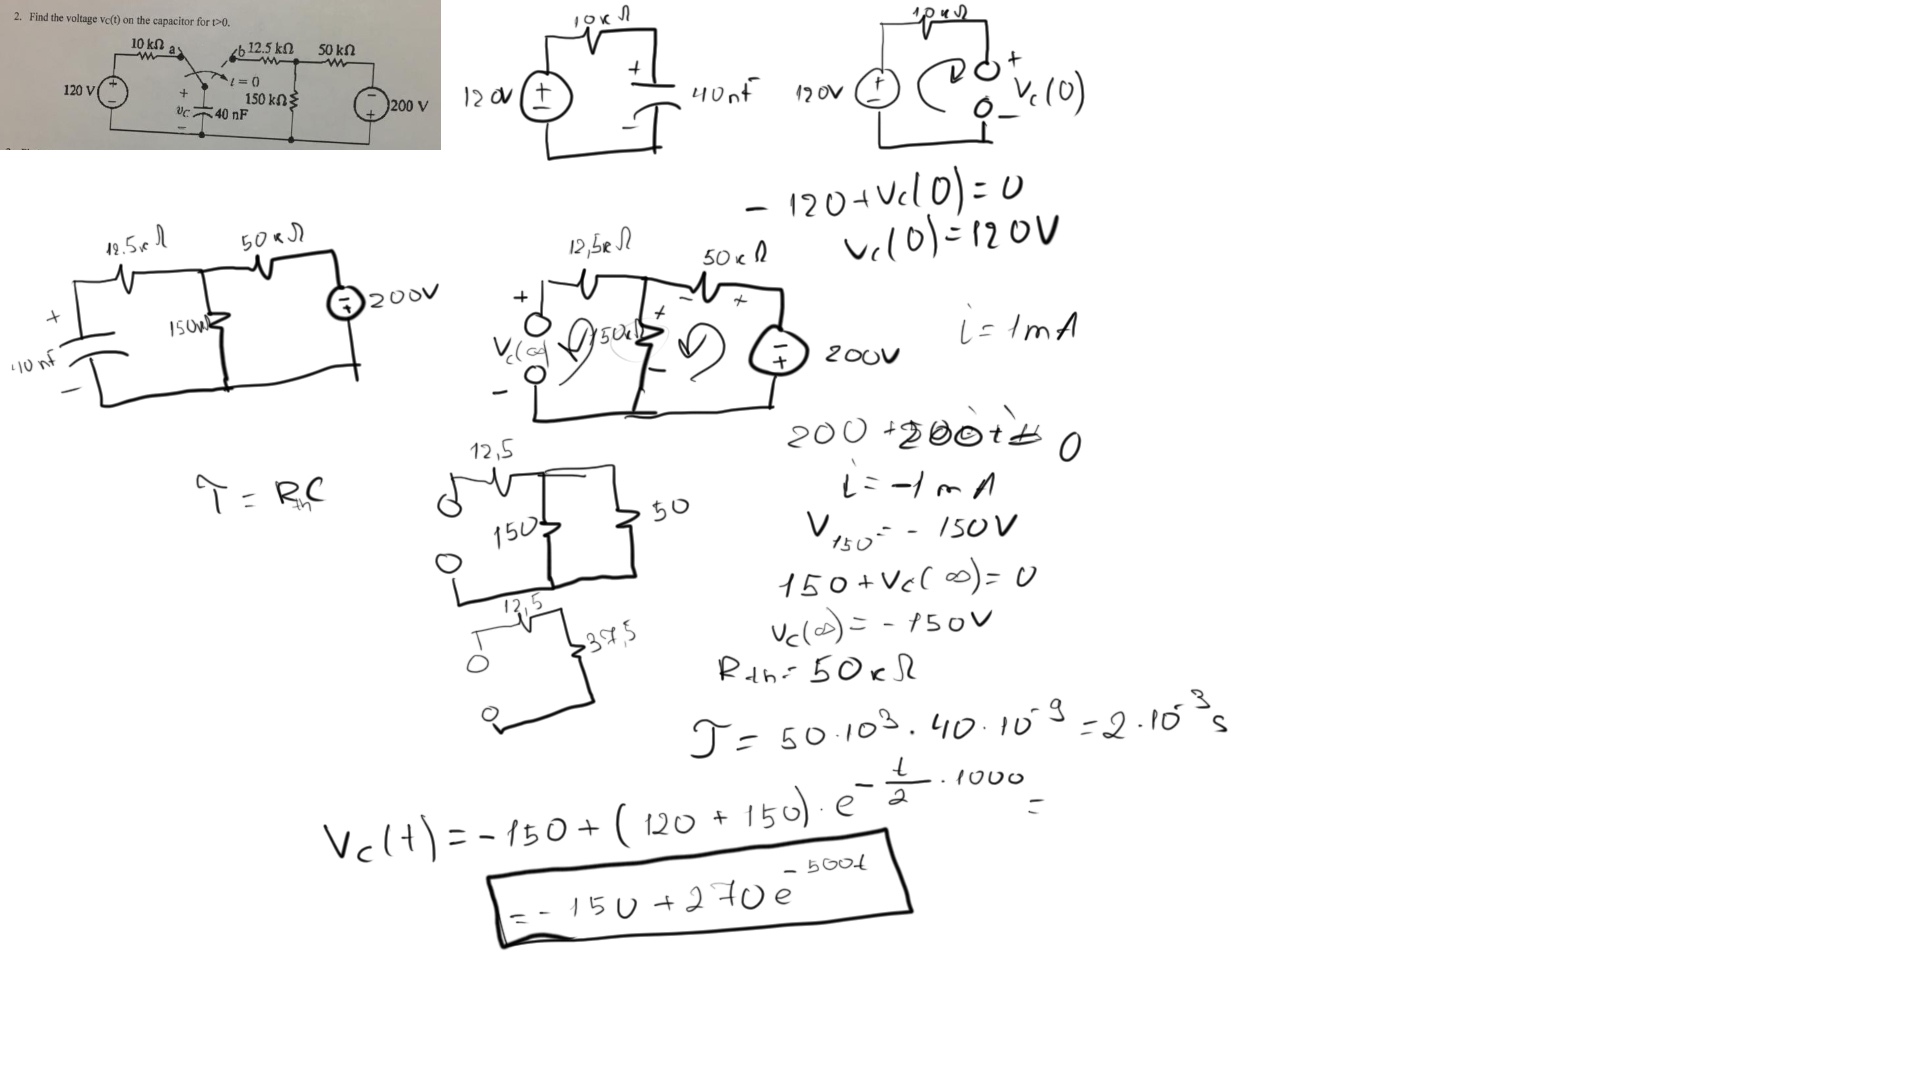 2. Find the voltage vc(t) on the capacitor for t>0.
10 kΩ a b 12.5 kΩ 50 kΩ
t = 0
120 V + − + vC − 40 nF 150 kΩ − + 200 V
10κΩ
120V + − + − 40nF
10κΩ
120V + − + Vc(0) −
− 120 + Vc(0) = 0
Vc(0) = 120V
12.5κΩ 50κΩ
+ 40 nF − 150κ − + 200V
12,5κΩ 50κΩ
+ Vc(∞) − 150κΩ + − − + − + 200V
i = 1mA
200 + 200i = 0
i = −1 mA
V150 = − 150V
150 + Vc(∞) = 0
Vc(∞) = − 150V
τ = RthC
12,5
150 50
12,5
37,5
Rth = 50κΩ
τ = 50·10³ · 40·10⁻⁹ = 2·10⁻³ s
Vc(t) = − 150 + (120 + 150) · e^(− t/2 · 1000) =
= − 150 + 270 e^(−500t)